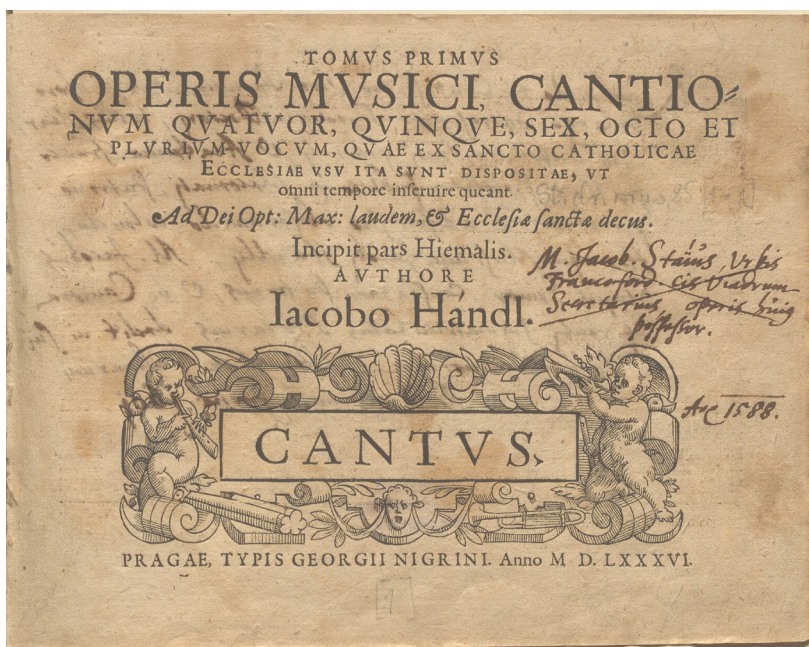 TOMVS PRIMVS
OPERIS MVSICI, CANTIO⸗
NVM QVATVOR, QVINQVE, SEX, OCTO ET
PLVRIVM VOCVM, QVAE EX SANCTO CATHOLICAE
ECCLESIAE VSV ITA SVNT DISPOSITAE, VT
omni tempore inſeruire queant.
Ad Dei Opt: Max: laudem, & Eccleſiæ ſanctæ decus.
Incipit pars Hiemalis.
AVTHORE
Iacobo Hándl.
M. Jacob. Staius Urbis
Francoford. cis Viadrum
Secretarius operis huiq
poſſeſſor.
1588.
CANTVS.
PRAGAE, TYPIS GEORGII NIGRINI. Anno M D. LXXXVI.